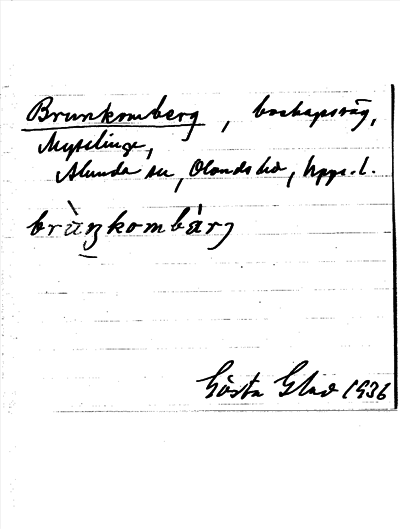 Brunkomberg, boskapsväg,
Mysslinge,
Alunda sn, Olands hd, Upps. l.
brùŋkombä́rj
Gösta Glad 1936